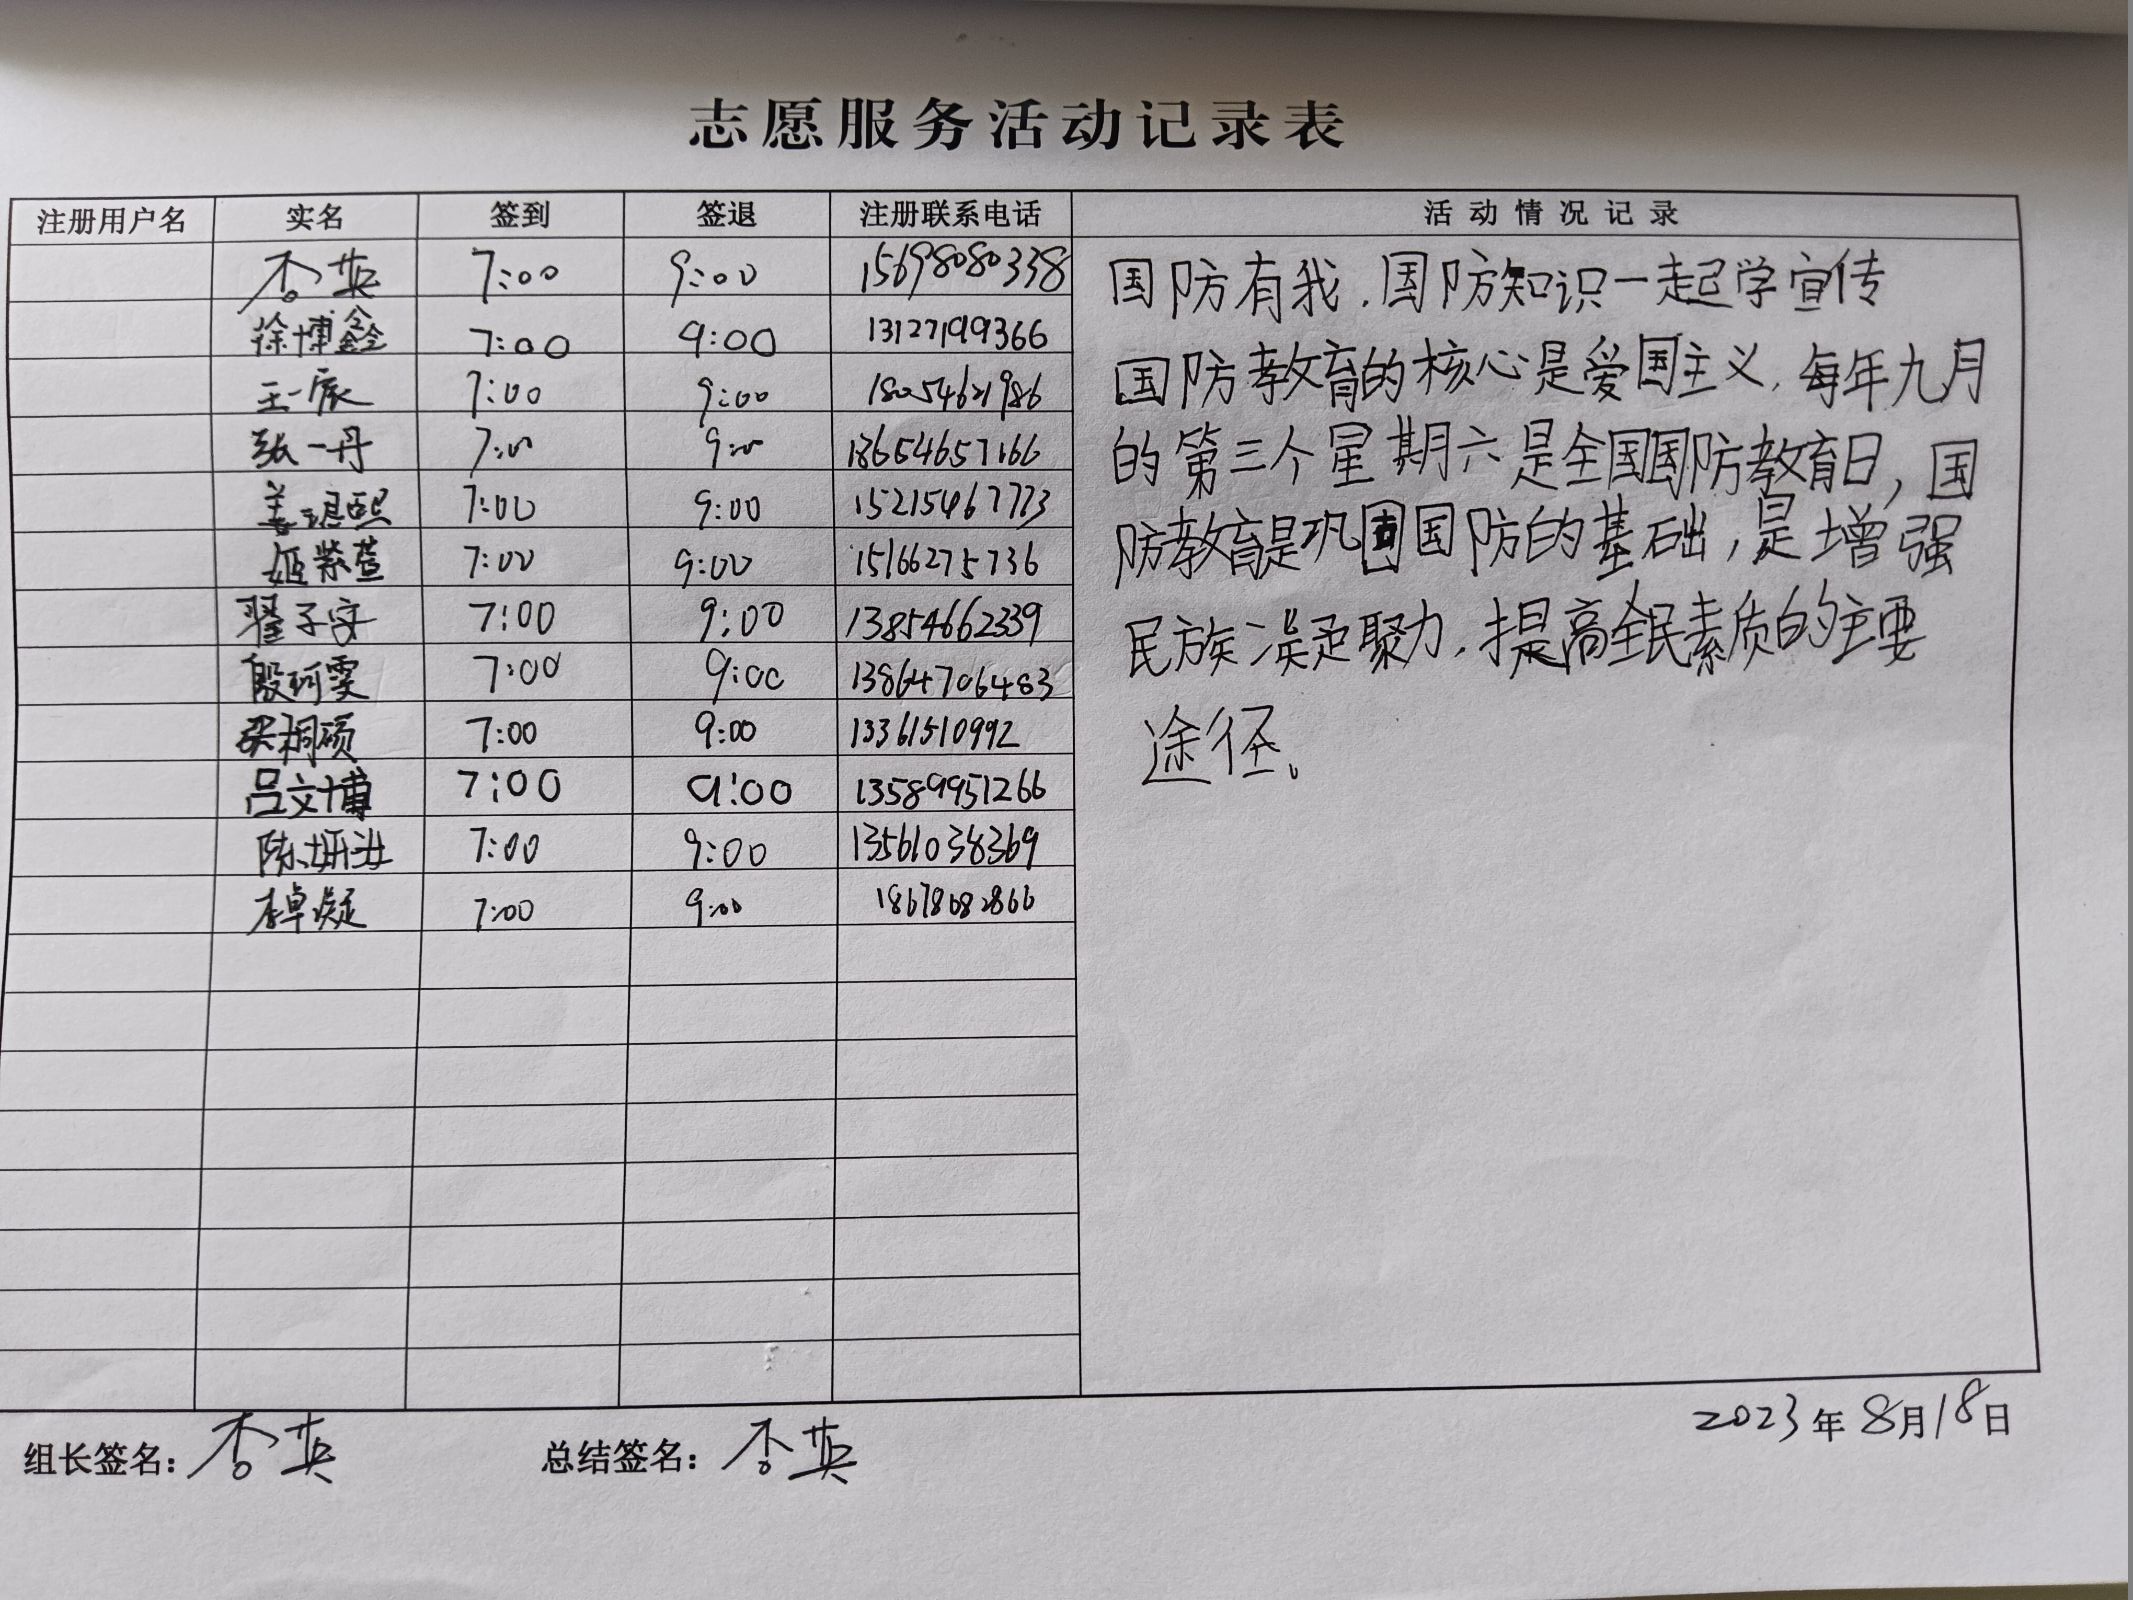 志愿服务活动记录表
注册用户名 实名 签到 签退 注册联系电话 活动情况记录
杏英 7:00 9:00 15698080338
徐博鑫 7:00 9:00 13127199366
王一宸 7:00 9:00 18054621986
张一丹 7:00 9:00 18654657166
姜 熙 7:00 9:00 15215467773
姬紫萱 7:00 9:00 15166275736
翟子安 7:00 9:00 13854662339
殷珂雯 7:00 9:00 13864706483
桐硕 7:00 9:00 13361510992
吕文博 7:00 9:00 13589951266
陈妍汝 7:00 9:00 13561038369
李卓凝 7:00 9:00 18678682866
国防有我,国防知识一起学宣传
国防教育的核心是爱国主义,每年九月
的第三个星期六是全国国防教育日,国
防教育是巩固国防的基础,是增强
民族凝聚力,提高全民素质的主要
途径、
2023年8月18日
组长签名:杏英 总结签名:杏英